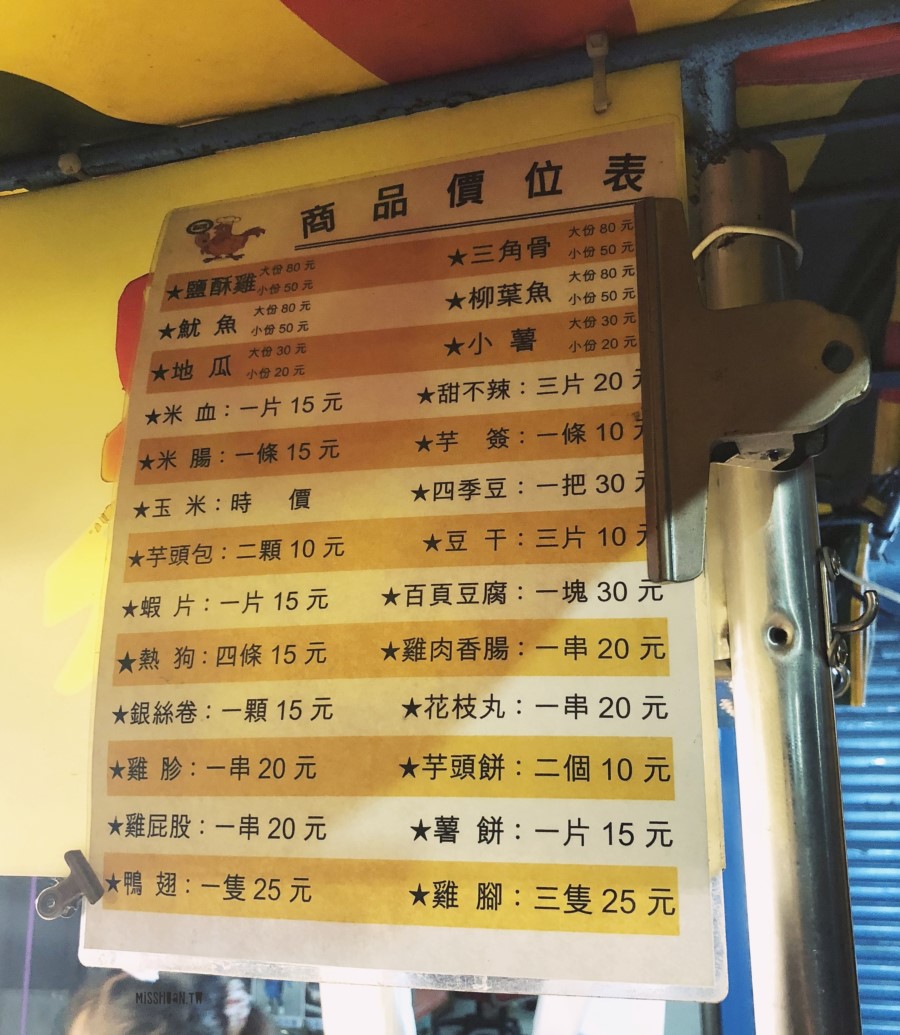 商品價位表
★鹽酥雞 大份 80 元 小份 50 元
★三角骨 大份 80 元 小份 50 元
★魷 魚 大份 80 元 小份 50 元
★柳葉魚 大份 80 元 小份 50 元
★地 瓜 大份 30 元 小份 20 元
★小 薯 大份 30 元 小份 20 元
★米 血：一片 15 元
★甜不辣：三片 20 元
★米 腸：一條 15 元
★芋 簽：一條 10 元
★玉 米：時 價
★四季豆：一把 30 元
★芋頭包：二顆 10 元
★豆 干：三片 10 元
★蝦 片：一片 15 元
★百頁豆腐：一塊 30 元
★熱 狗：四條 15 元
★雞肉香腸：一串 20 元
★銀絲卷：一顆 15 元
★花枝丸：一串 20 元
★雞 胗：一串 20 元
★芋頭餅：二個 10 元
★雞屁股：一串 20 元
★薯 餅：一片 15 元
★鴨 翅：一隻 25 元
★雞 腳：三隻 25 元
MISSHUAN.TW